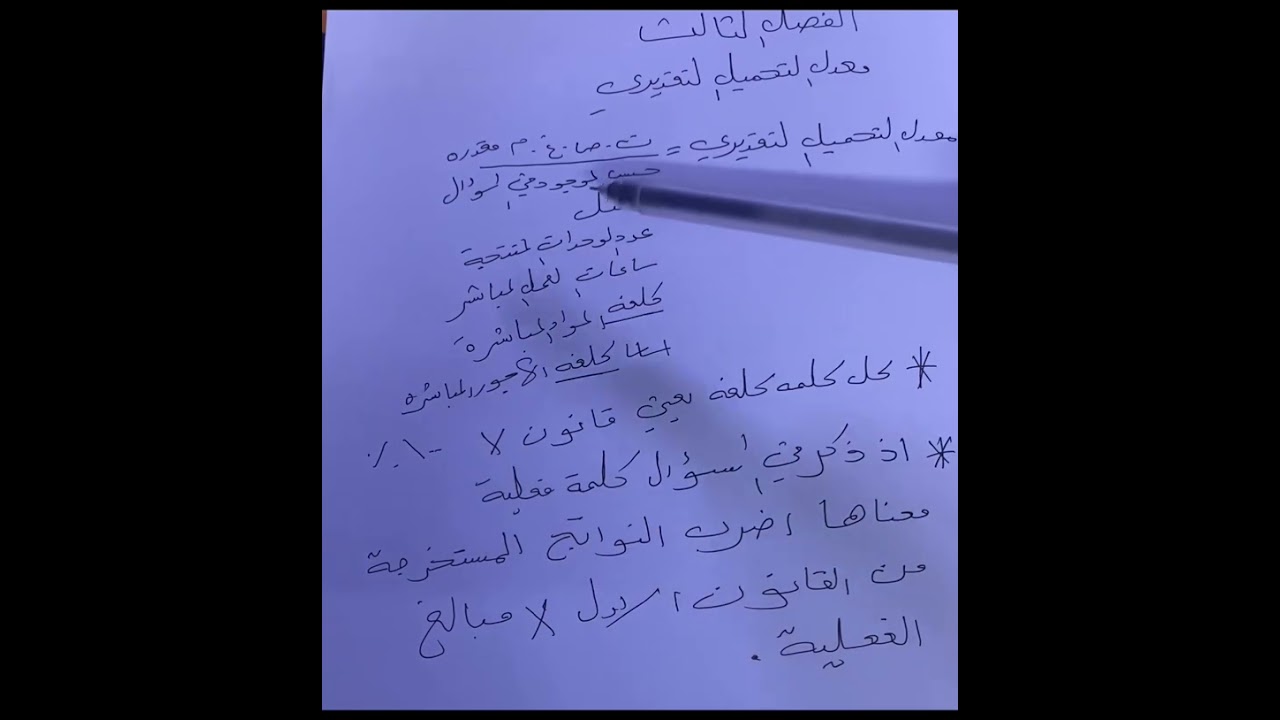 الفصل الثالث
معدل التحميل التقديري
معدل التحميل التقديري = ت.ص.غ.م مقدره
حسب الموجود في السؤال
عدد الوحدات المنتجة
ساعات العمل المباشر
كلفه المواد المباشرة
كلفه الأجور المباشره
* كل كلمه كلفه يعني قانون × ١٠٠٪
* اذ ذكر في السؤال كلمة فعلية
معناها اضرب النواتج المستخرجة
من القانون الاول × مبالغ
الفعلية .